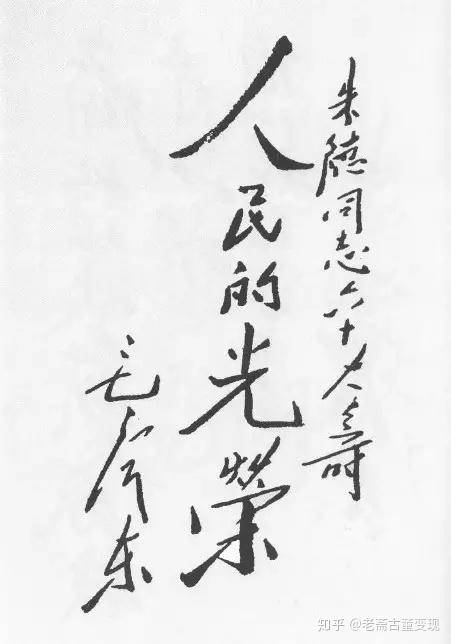 朱德同志六十大寿
人民的光榮
毛泽东
知乎 @老斋古董变现